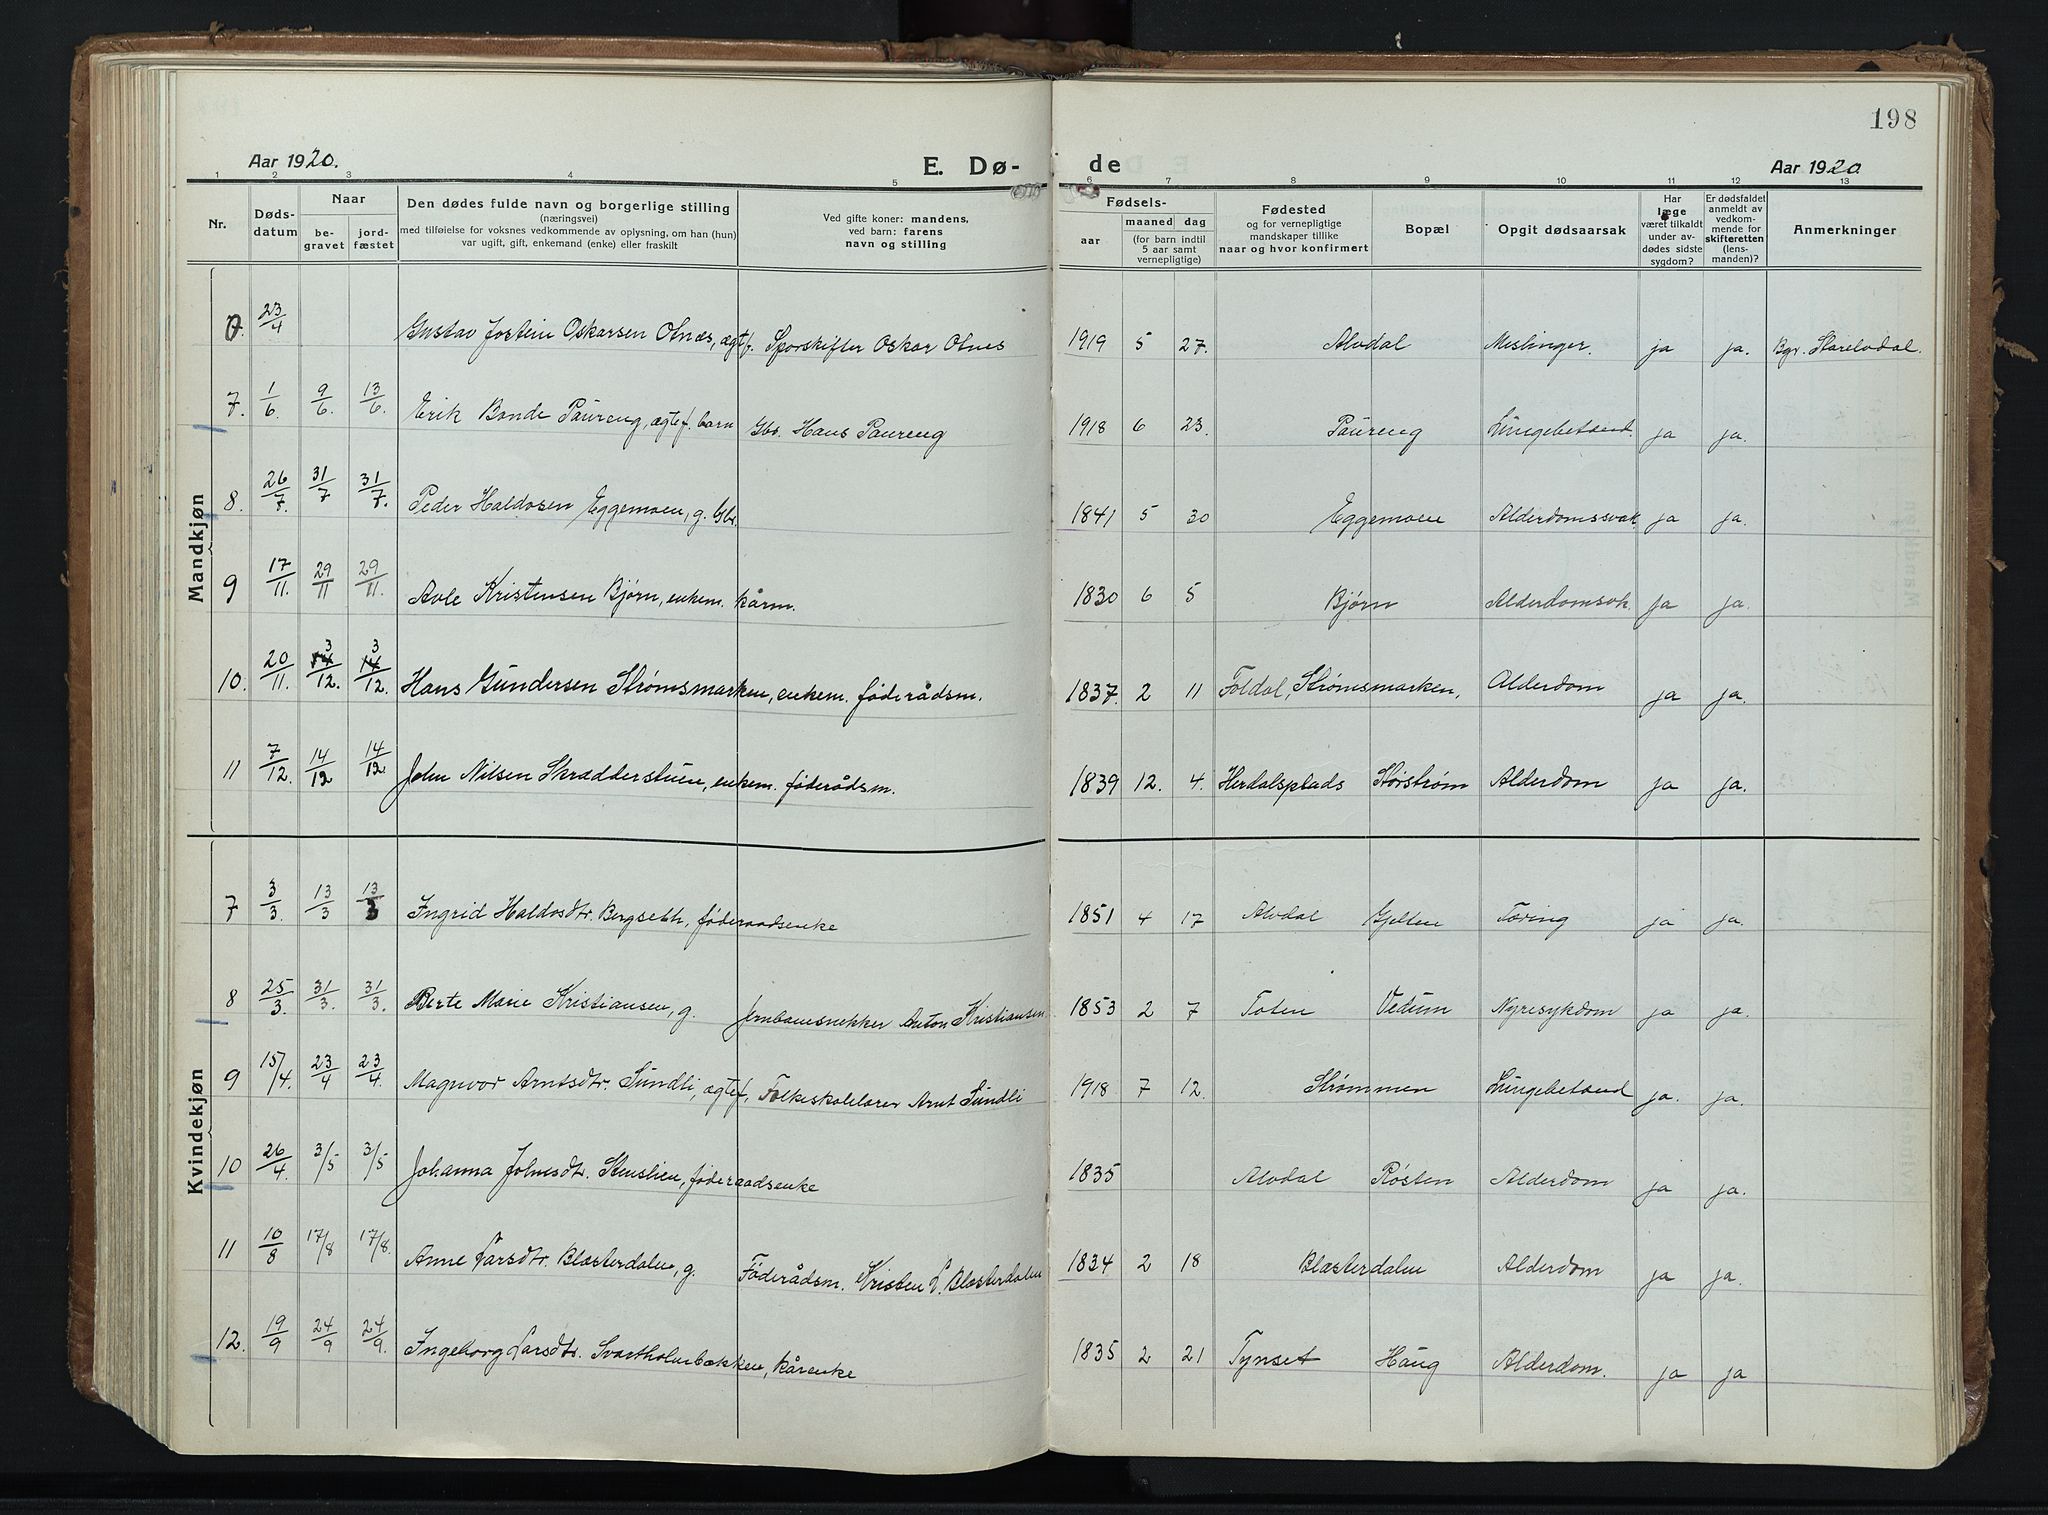 198
Aar 1920. E. Dø- de Aar 1920
1 2 3 4 5 6 7 8 9 10 11 12 13
Nr. Døds-datum Naar be-gravet jord-fæstet Den dødes fulde navn og borgerlige stilling (næringsvei) med tilføielse for voksnes vedkommende av oplysning, om han (hun) var ugift, gift, enkemand (enke) eller fraskilt Ved gifte koner: mandens, ved barn: farens navn og stilling Fødsels- aar maaned dag (for barn indtil 5 aar samt vernepligtige) Fødested og for vernepligtige mandskaper tillike naar og hvor konfirmert Bopæl Opgit dødsaarsak Har læge været tilkaldt under av-dødes sidste sygdom? Er dødsfaldet anmeldt av vedkom-mende for skifteretten (lens-manden)? Anmerkninger
Mandkjøn
23/4 Gustav Jostein Oskarsen Olnæs, ægtef. Sporskifter Oskar Olnes 1919 5 27. Alvdal Meslinger. ja ja. Bgr.
7. 1/6. 9/6. 13/6. Erik Bonde Paureng, ægtef. barn Gbr. Hans Paureng 1918 6 23. Paureng Lungebetænd. ja ja.
8. 26/7. 31/7 31/7. Peder Haldosen Eggemoen, g. Gbr. 1841 5 30 Eggemoen Alderdomssvak. ja ja.
9 17/11. 29/11 29/11. Avle Kristensen Bjørn, enkem. kårm. 1830 6 5 Bjørn Alderdomsvk. ja ja.
10. 20/11. 3/12. 3/12. Hans Gundersen Strømsmarken, enkem. føderådsm. 1837. 2 11 Foldal, Strømsmarken, Alderdom ja ja.
11 7/12. 14/12 14/12. John Nilsen Skrædderstuen, enkem. føderådsm. 1839 12. 4. Herdalsplads Storstrøm Alderdom ja ja.
Kvindekjøn
7 3/3. 13/3 13/3 Ingrid Haldosdtr. Bergseth, føderaadsenke 1851 4 17 Alvdal Gjelten Tæring ja ja.
8 25/3. 31/3. 31/3. Berte Marie Kristiansen, g. Jernbanesnekker Anton Kristiansen 1853 2 7 Toten Vedum Nyresykdom ja ja.
9 15/4. 23/4 23/4. Magnvor Arntsdtr. Sundli, ægtef. Folkeskolelærer Arnt Sundli 1918 7 12. Strømmen Lungebetænd ja. ja.
10 26/4. 3/5 3/5 Johanna Johnsdtr. Stenslien, føderaadsenke 1835 Alvdal Røsten Alderdom ja ja.
11 10/8 17/8 17/8. Anne Larsdtr. Blæsterdalen, g. Føderådsm. Kristen L. Blæsterdalen 1834 2 18 Blæsterdalen Alderdom ja ja.
12. 19/9 24/9 24/9. Ingeborg Larsdtr. Svartholmbækken, kårenke 1835 2 21 Tynset Haug Alderdom. ja ja